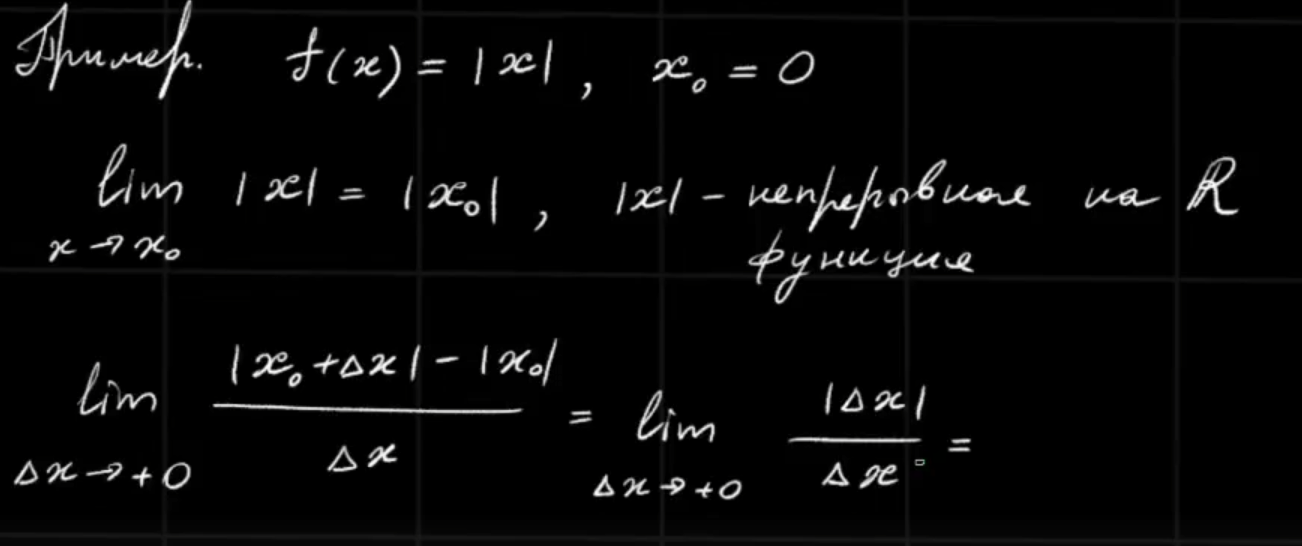 Пример. f(x) = |x|, x₀ = 0
lim |x| = |x₀|, |x| - непрерывная на ℝ
x → x₀ функция
lim |x₀ + Δx| - |x₀| / Δx = lim |Δx| / Δx =
Δx → +0 Δx → +0